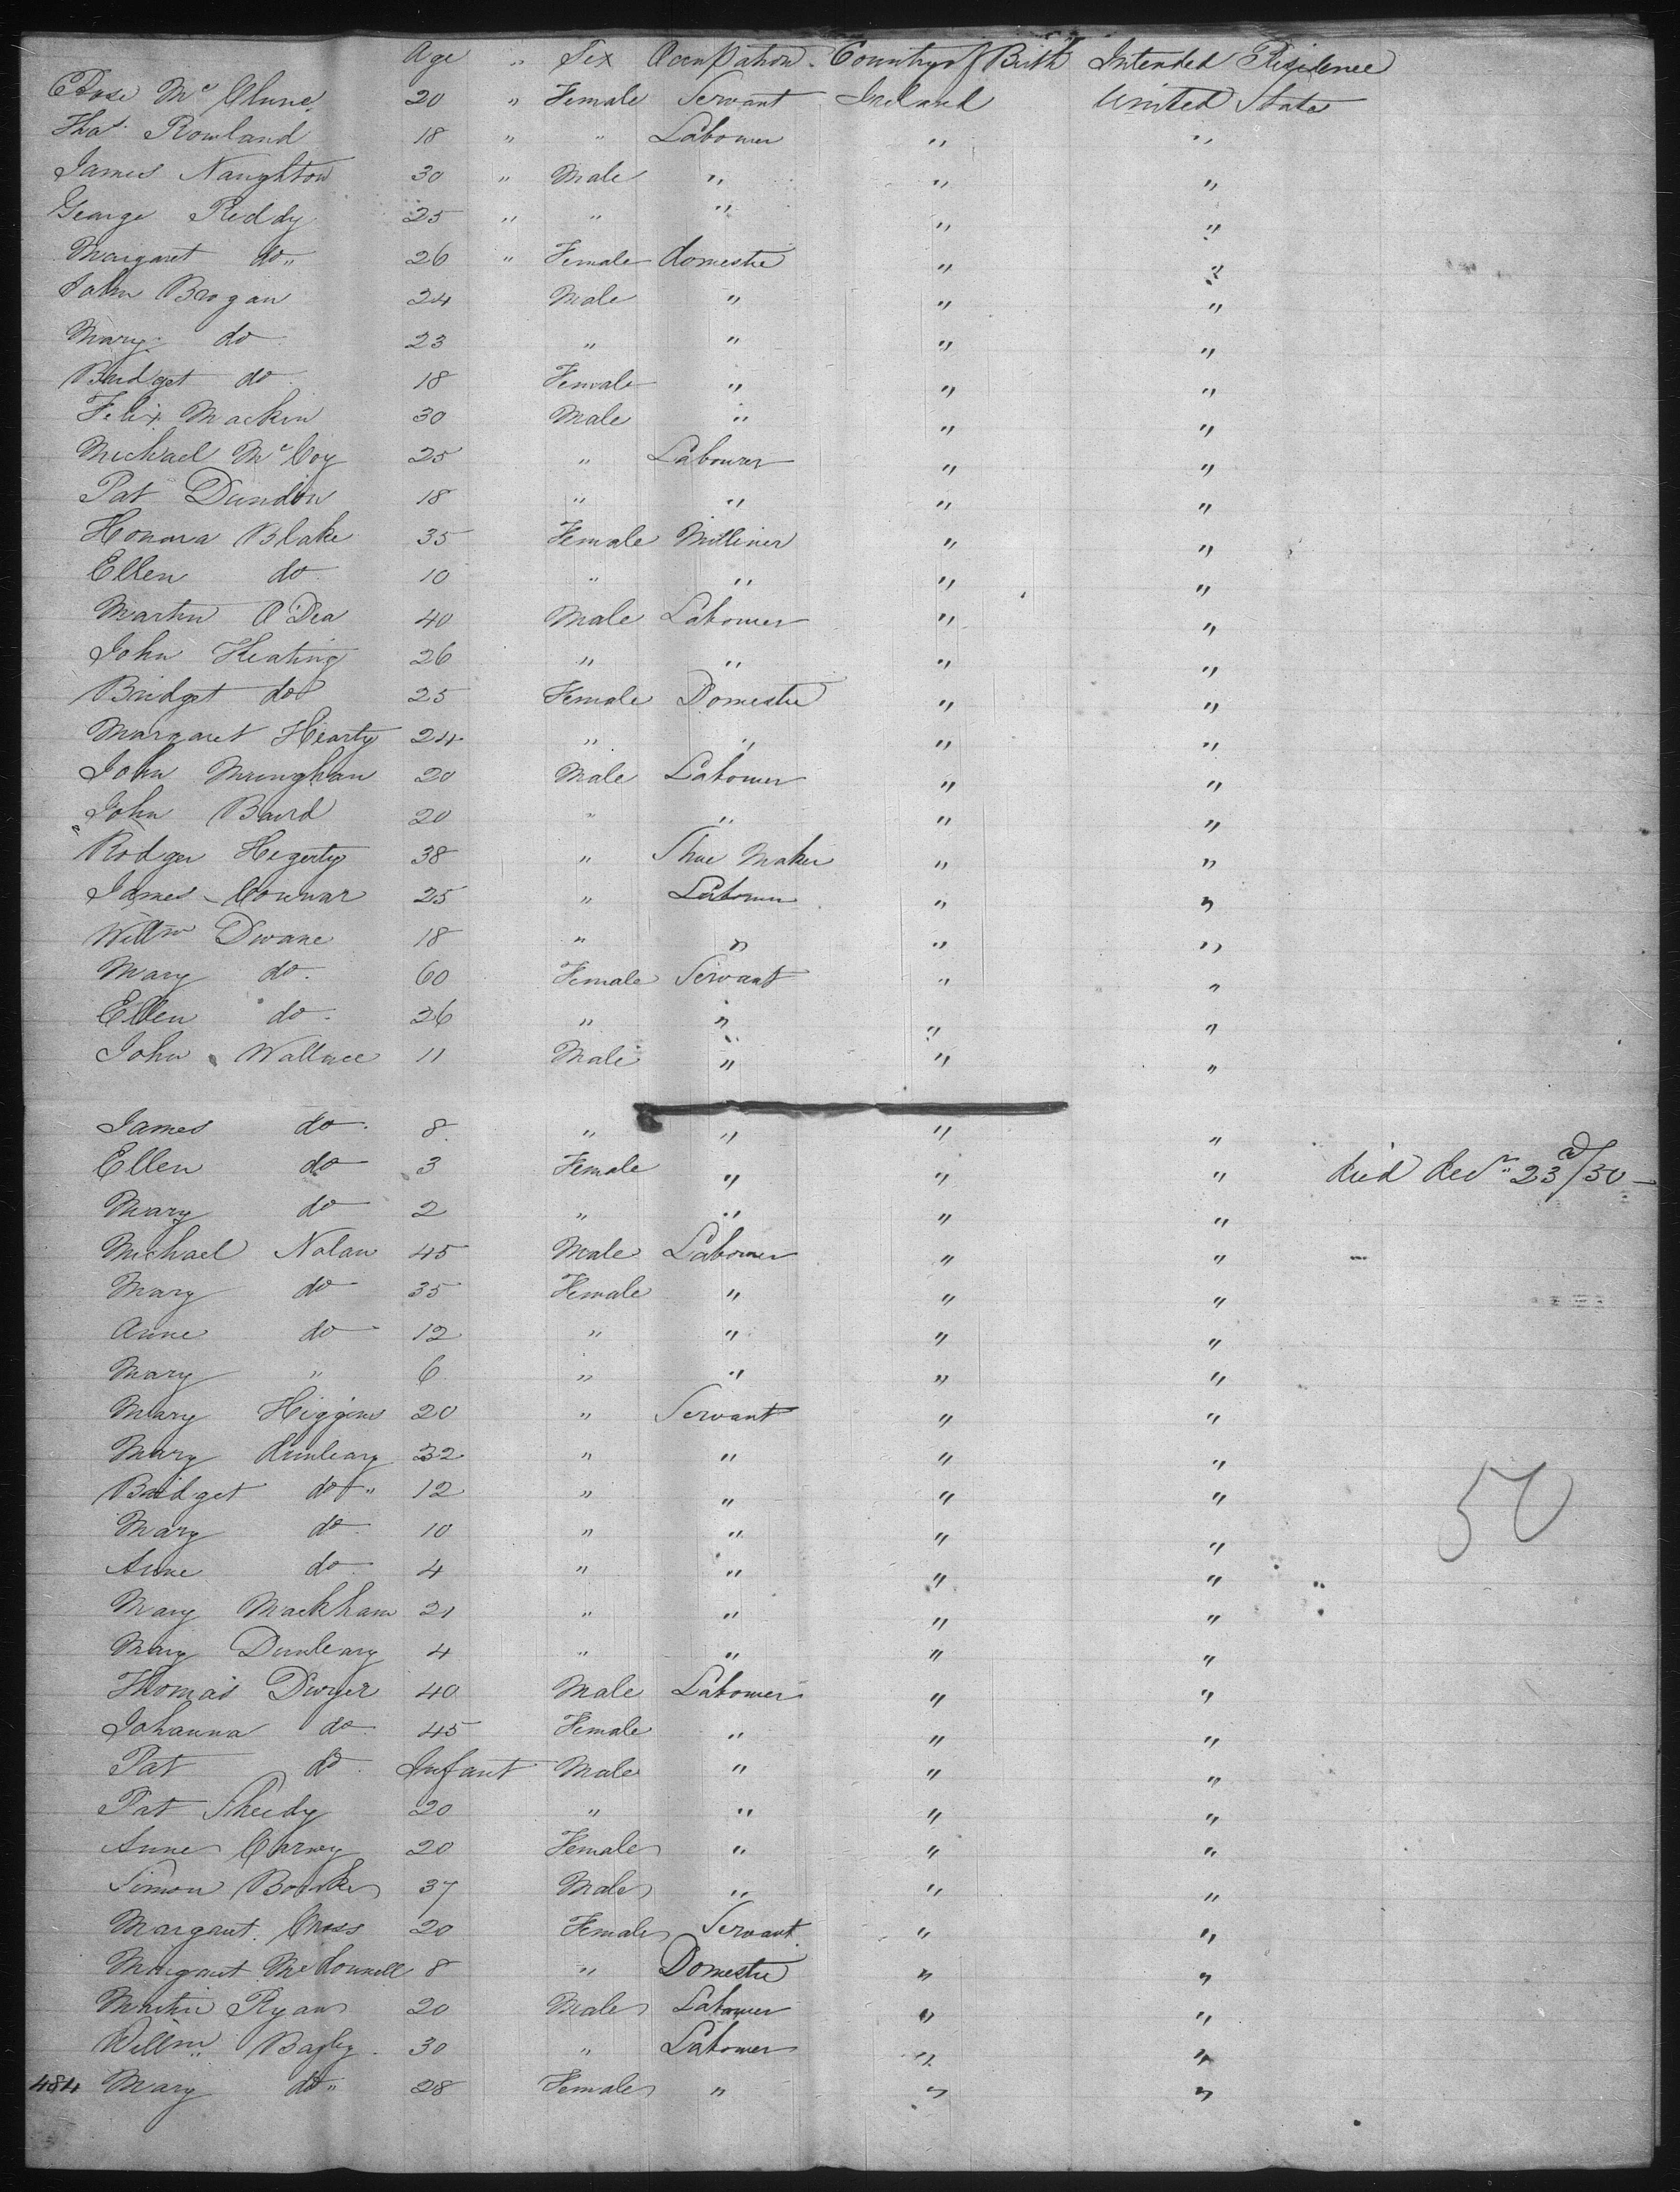 Age " Sex Occupation Country of Birth Intended Residence
Rose Mc Clune 20 " Female Servant Ireland United States
Thos Rowland 18 " " Labourer " "
James Naughton 30 " Male " " "
George Reddy 25 " " " " "
Margaret do " 26 " Female domestic " "
John Brogan 24 Male " " "
Mary do 23 " " " "
Bridget do 18 Female " " "
Felix Mackin 30 Male " " "
Michael Mc Coy 25 " Labourer " "
Pat Dundon 18 " " " "
Honora Blake 35 Female Milliner " "
Ellen do 10 " " " "
Martin O'Dea 40 Male Labourer " "
John Keating 26 " " " "
Bridget do 25 Female Domestic " "
Margaret Hearty 24 " " " "
John 20 Male Labourer " "
John Baird 20 " " " "
Rodger Hegerty 38 " Shoe Maker " "
James Connar 25 " Labourer " "
Willm Dwane 18 " " " "
Mary do 60 Female Servant " "
Ellen do 26 " " " "
John Wallace 11 Male " " "
James do 8 " " " "
Ellen do 3 Female " " " died decr 23d/50
Mary do 2 " " " "
Michael Nolan 45 Male Labourer " "
Mary do 35 Female " " "
Anne do 12 " " " "
Mary " 6 " " " "
Mary Higgins 20 " Servant " "
Mary dunleary 32 " " " "
Bridget do " 12 " " " "
Mary do 10 " " " "
50
Anne do 4 " " " "
Mary Mackham 21 " " " "
Mary Dunleary 4 " " " "
Thomas Dwyer 40 Male Labourer " "
Johanna do 45 Female " " "
Pat do Infant Male " " "
Pat Sheedy 20 " " " "
Anne Carney 20 Female " " "
Simon Bourke 37 Male " " "
Margaret Cross 20 Female Servant " "
Margaret Mc donnell 8 " Domestic " "
Martin Ryan 20 Male Labourer " "
Willm Bagley 30 " Labourer " "
484 Mary do " 28 Female " " "